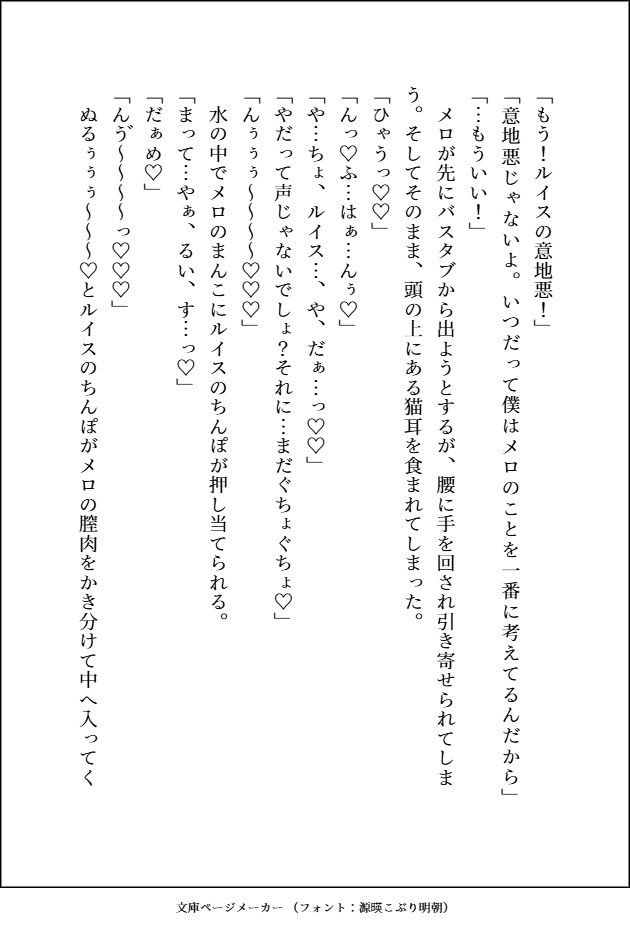 「もう！ルイスの意地悪！」
「意地悪じゃないよ。いつだって僕はメロのことを一番に考えてるんだから」
「…もういい！」
　メロが先にバスタブから出ようとするが、腰に手を回され引き寄せられてしま
う。そしてそのまま、頭の上にある猫耳を食まれてしまった。
「ひゃうっ♡♡」
「んっ♡ふ…はぁ…んぅ♡」
「や…ちょ、ルイス…、や、だぁ…っ♡♡」
「やだって声じゃないでしょ？それに…まだぐちょぐちょ♡」
「んぅぅぅ〜〜〜〜♡♡♡」
　水の中でメロのまんこにルイスのちんぽが押し当てられる。
「まって…やぁ、るい、す…っ♡」
「だぁめ♡」
「んゔ〜〜〜〜っ♡♡♡」
　ぬるぅぅぅ〜〜〜♡とルイスのちんぽがメロの膣肉をかき分けて中へ入ってく
文庫ページメーカー（フォント：源暎こぶり明朝）